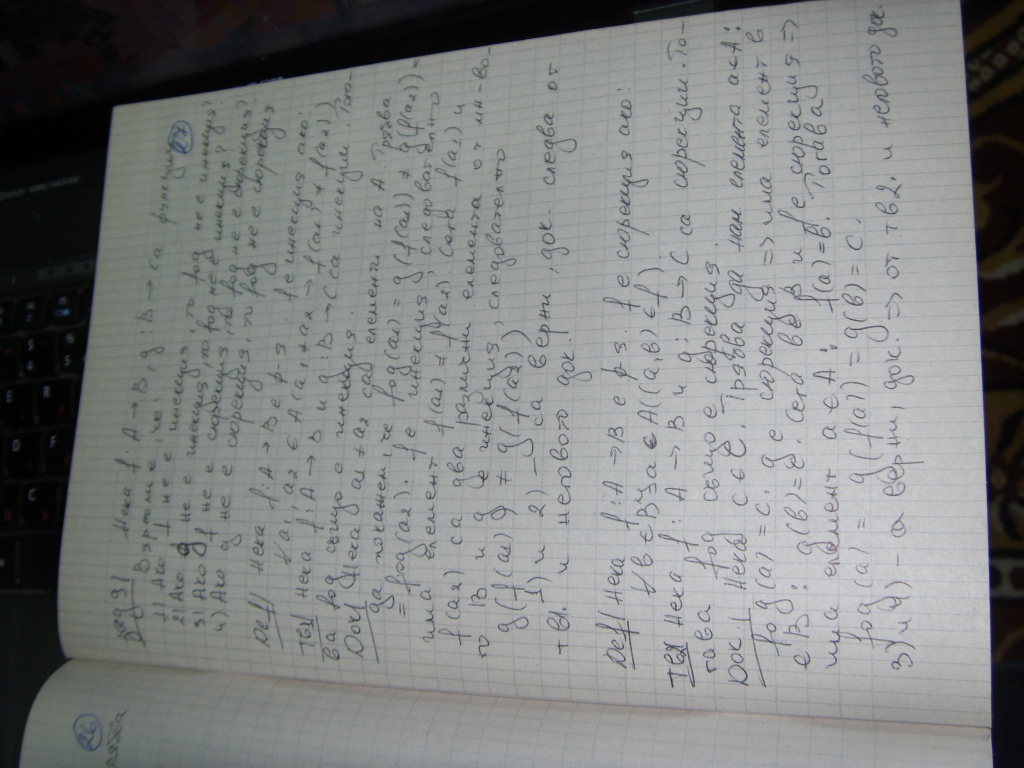 26
27
Зад 9| Нека f: A → B, g: B → C са функции.
Възможно ли е, че:
1) Ако f не е инекция, то fog не е инекция?
2) Ако g не е инекция, то fog не е инекция?
3) Ако f не е сюрекция, то fog не е сюрекция?
4) Ако g не е сюрекция, то fog не е сюрекция
Def| Нека f: A → B е ф-я. f е инекция ако:
∀a1, a2 ∈ A (a1 ≠ a2 → f(a1) ≠ f(a2))
Тв| Нека f: A → B и g: B → C са инекции. Тога-
ва fog също е инекция.
Док| Нека a1 ≠ a2 са елементи на A. Трябва
да покажем, че fog(a1) = g(f(a1)) ≠ g(f(a2)) =
= fog(a2). f е инекция, следователно
има елемент f(a1) ≠ f(a2). Сега f(a1) и
f(a2) са два различни елемента от мн-во-
то B и g е инекция, следователно
g(f(a1)) ≠ g(f(a2))
1) и 2) - са верни, док. следва от
тв1. и неговото док.
Def| Нека f: A → B е ф-я. f е сюрекция ако:
∀b ∈ B ∃a ∈ A ((a, b) ∈ f).
Тв2 Нека f: A → B и g: B → C са сюрекции. То-
гава fog също е сюрекция.
Док.| Нека c ∈ C. Трябва да нам елемента a ∈ A:
fog(a) = c. g е сюрекция => има елемент b
∈ B: g(b) = c. Сега b ∈ B и f е сюрекция =>
има елемент a ∈ A: f(a) = b. Тогава
fog(a) = g(f(a)) = g(b) = c.
3) и 4) - са верни, док. => от тв2. и неговото док.